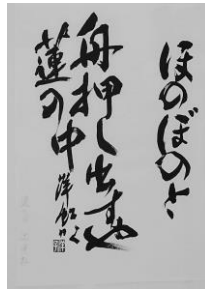 ほのぼのと
舟押し出すや
蓮の中